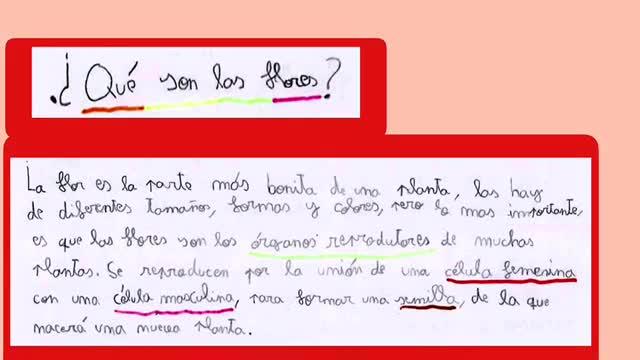 ¿Qué son las flores?
La flor es la parte más bonita de una planta, las hay
de diferentes tamaños, formas y colores, pero lo mas importante,
es que las flores son los órganos reprodutores de muchas
plantas. Se reproducen por la unión de una célula femenina
con una célula masculina, para formar una semilla, de la que
nacerá una nueva planta.